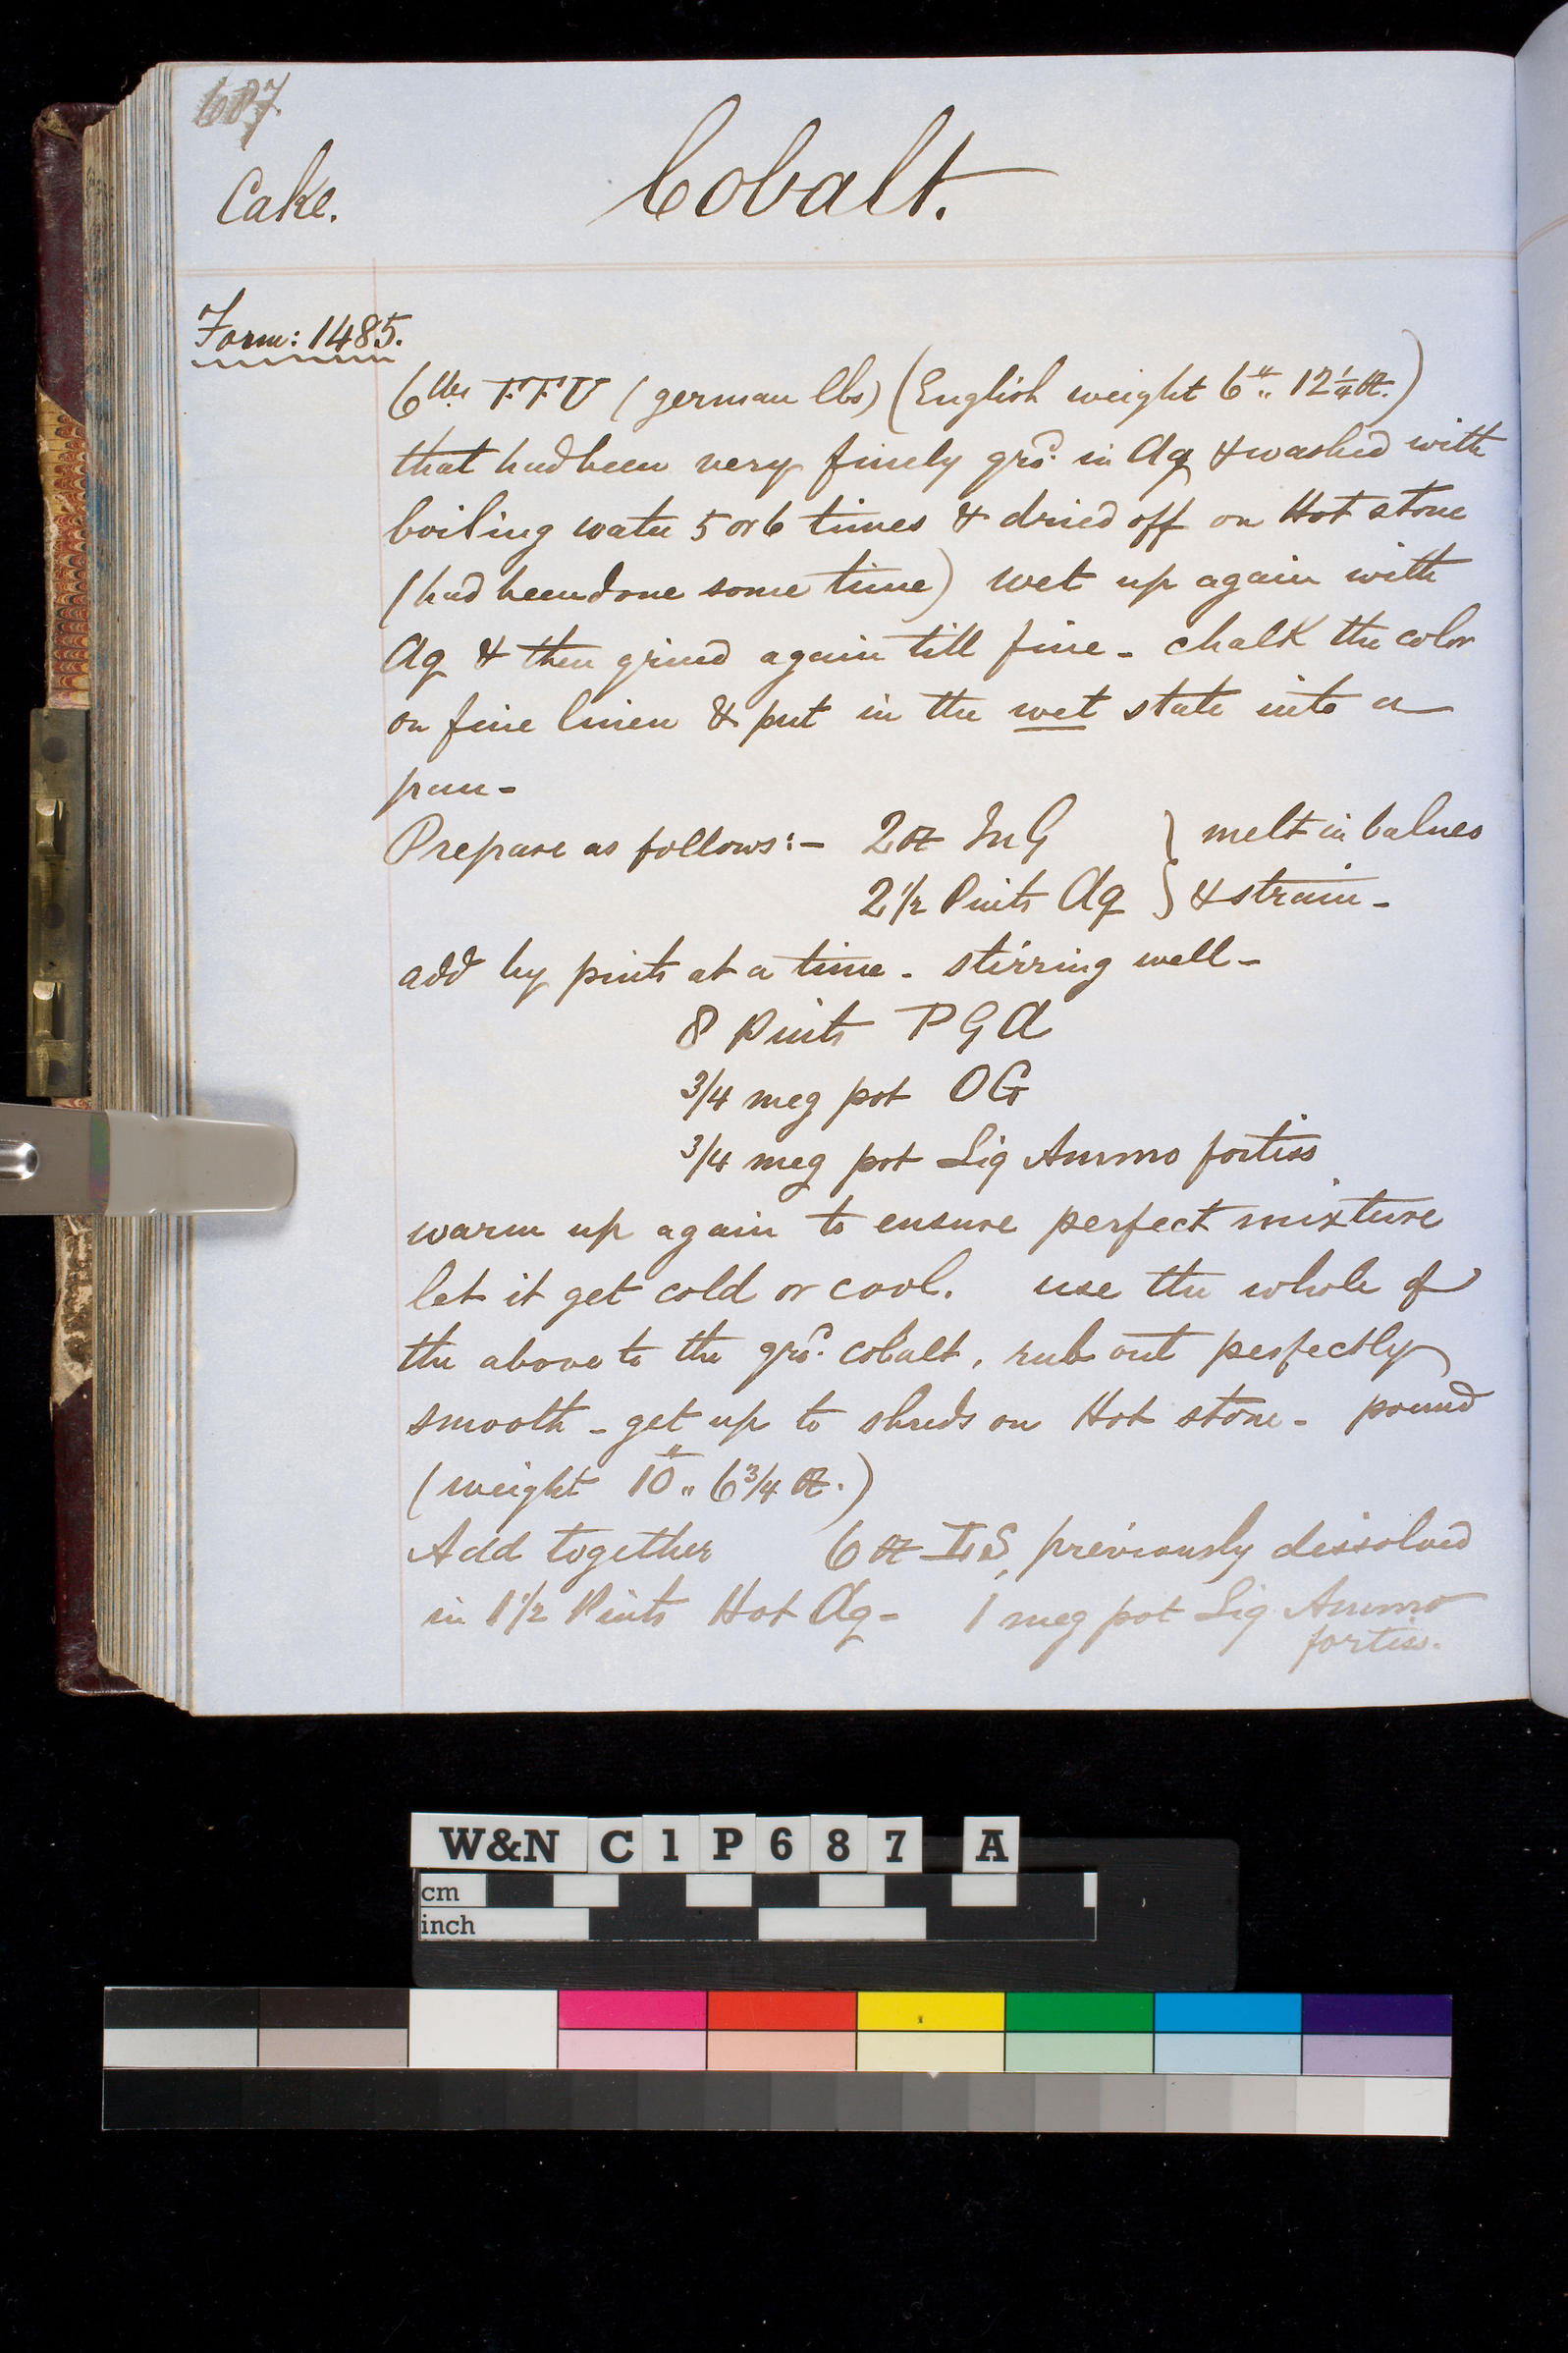 687
Cake. Cobalt.
Form: 1485.
6 lbs FFU (german lbs) (English weight 6 lb.. 12 1/4 oz.)
that had been very finely grd. in Aq & washed with
boiling water 5 or 6 times & dried off on Hot stone
(had been done some time) wet up again with
Aq & then grind again till fine - chalk the color
on fine linen & put in the wet state into a
pan -
Prepare as follows: - 2 oz InG } melt in balneo
2 1/2 Pints Aq } & strain -
add by pints at a time - stirring well -
8 Pints PGA
3/4 meg pot OG
3/4 meg pot Liq Ammo fortiss
warm up again to ensure perfect mixture
let it get cold or cool. use the whole of
the above to the grd. cobalt, rub out perfectly
smooth - get up to shreds on Hot stone - pound
(weight 10 lb.. 6 3/4 oz.)
Add together 6 oz LS, previously dissolved
in 1 1/2 Pints Hot Aq - 1 meg pot Liq Ammo
fortiss.
W&N C1P687 A
cm
inch